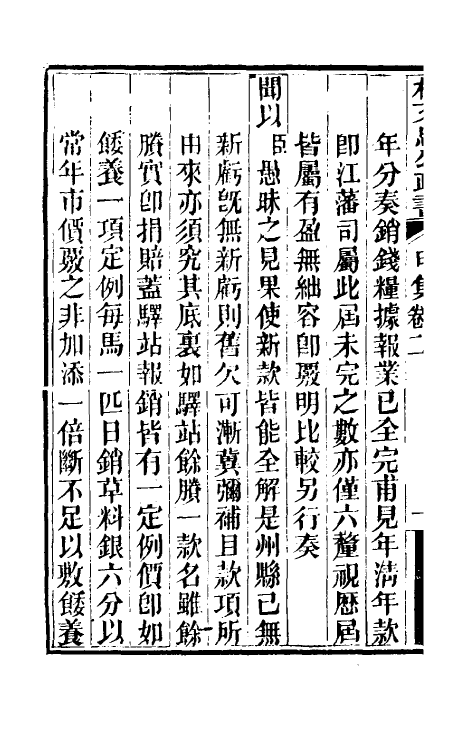 年分奏銷錢糧據報業已全完甫見年淸年款
卽江藩司屬此屆未完之數亦僅六釐視歷屆
皆屬有盈無絀容卽覈明比較另行奏
聞以臣愚昧之見果使新款皆能全解是州縣已無
新虧旣無新虧則舊欠可漸冀彌補且款項所
由來亦須究其底裏如驛站餘賸一款名雖餘
賸實卽捐賠蓋驛站報銷皆有一定例價卽如
餧養一項定例每馬一匹日銷草料銀六分以
常年市價覈之非加添一倍斷不足以敷餧養